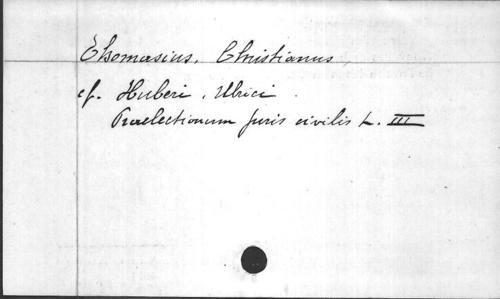 Thomasius, Christianus
cf. Huberi, Ulrici.
Praelectionum juris civilis L. III